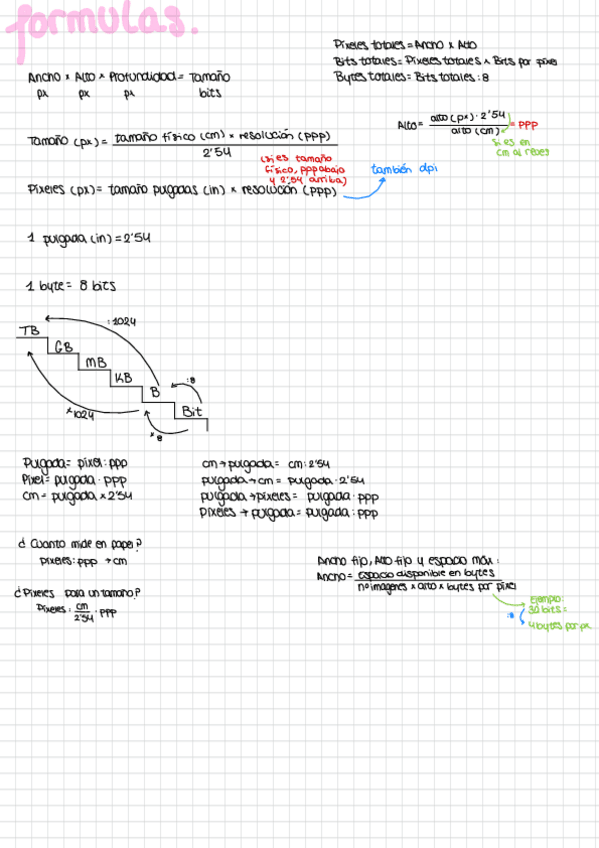 formulas.
Píxeles totales = Ancho x Alto
Bits totales = Píxeles totales x Bits por píxel
Bytes totales = Bits totales : 8
Ancho x Alto x Profundidad = Tamaño
px px px bits
Alto = alto (px) · 2'54 / alto (cm) = PPP
si es en
cm al revés
Tamaño (px) = tamaño físico (cm) x resolución (PPP) / 2'54
(si es tamaño
físico, ppp abajo
y 2'54 arriba)
también dpi
Píxeles (px) = tamaño pulgadas (in) x resolución (PPP)
1 pulgada (in) = 2'54
1 byte = 8 bits
: 1024
TB
GB
MB
KB
B
: 8
Bit
x 1024
x 8
Pulgada = píxel : ppp
Píxel = pulgada · ppp
cm = pulgada x 2'54
cm → pulgada = cm : 2'54
pulgada → cm = pulgada · 2'54
pulgada → píxeles = pulgada · ppp
píxeles → pulgada = pulgada : ppp
¿Cuánto mide en papel?
píxeles : ppp → cm
¿Píxeles para un tamaño?
Píxeles : cm / 2'54 · PPP
Ancho fijo, Alto fijo y espacio máx:
Ancho = espacio disponible en bytes / nº imágenes x alto x bytes por píxel
Ejemplo:
32 bits =
:8
4 bytes por px.